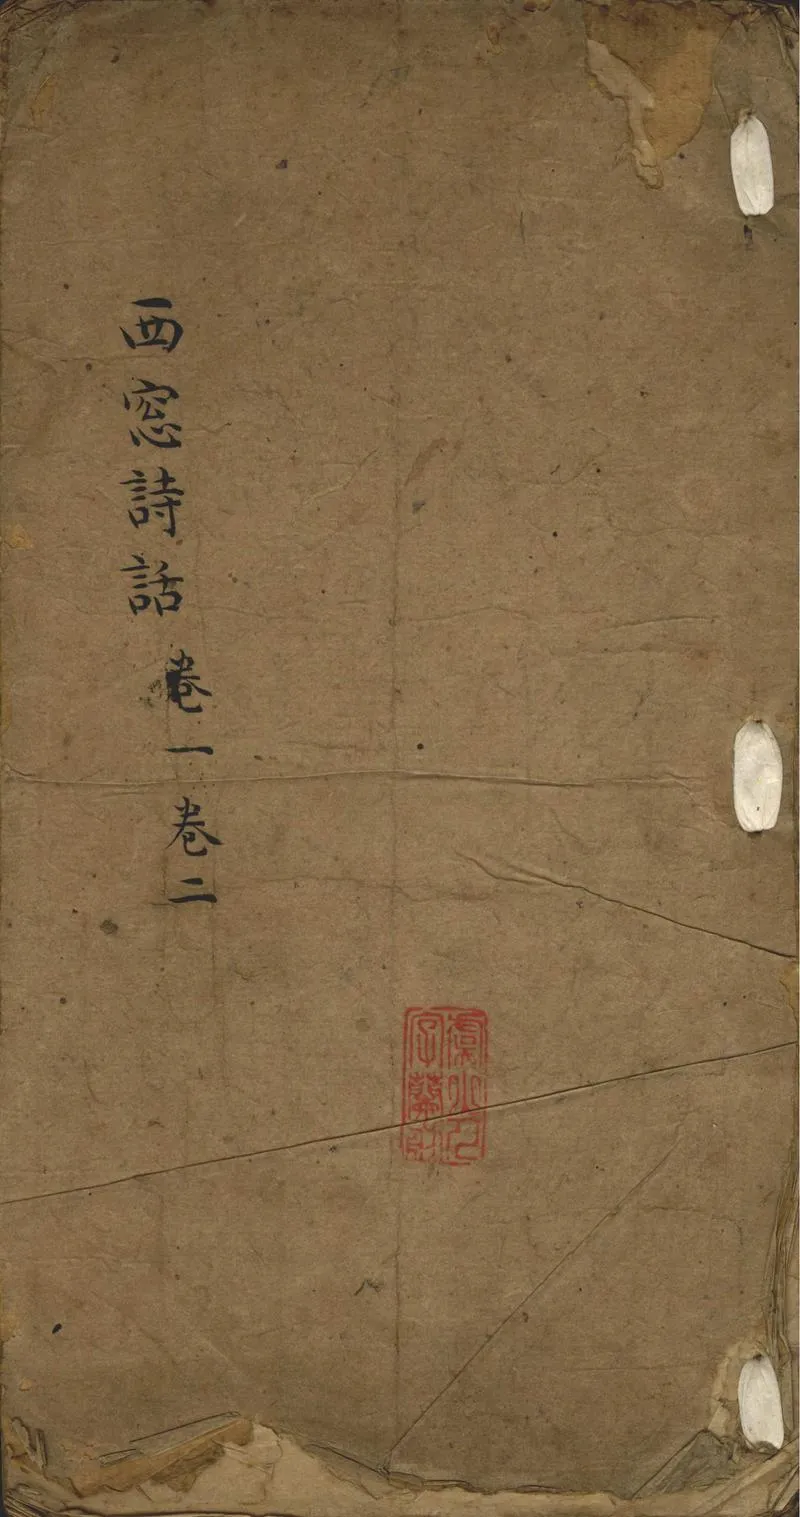 西窓詩話
卷一卷二